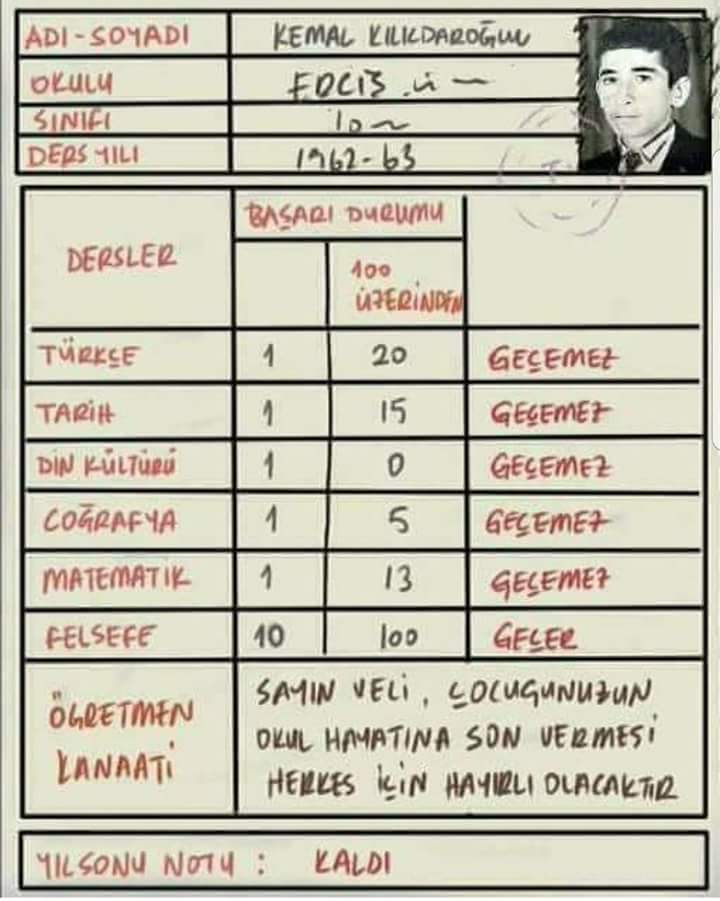 ADI-SOYADI KEMAL KILIÇDAROĞLU
OKULU
SINIFI 10
DERS YILI 1962-63
DERSLER
BAŞARI DURUMU
100
ÜZERİNDEN
TÜRKÇE 1 20 GEÇEMEZ
TARİH 1 15 GEÇEMEZ
DİN KÜLTÜRÜ 1 0 GEÇEMEZ
COĞRAFYA 1 5 GEÇEMEZ
MATEMATİK 1 13 GEÇEMEZ
FELSEFE 10 100 GEÇER
ÖĞRETMEN
KANAATİ
SAYIN VELİ, ÇOCUGUNUZUN
OKUL HAYATINA SON VERMESİ
HERKES İÇİN HAYIRLI OLACAKTIR
YILSONU NOTU : KALDI